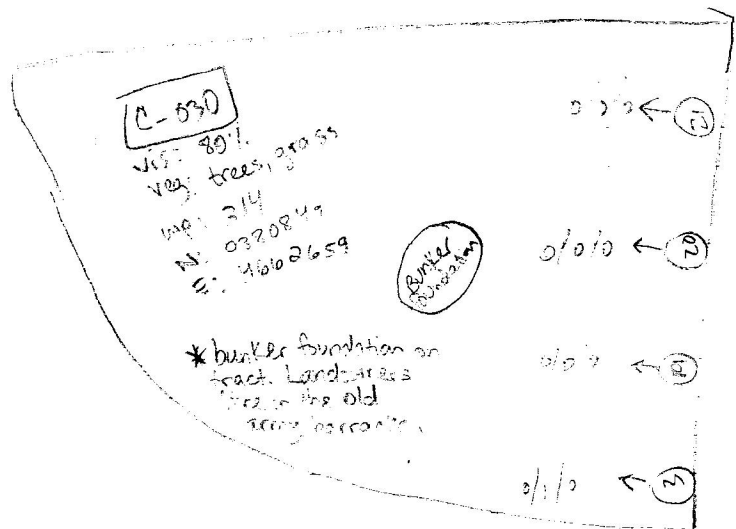 C-03D
vis: 80%
veg: trees, grass
wp: 314
N: 0380849
E: 4662659
Bunker
foundation
* bunker foundation on
tract. Landowners
are in the old
army
0/0/0 ←
0/0/0 ← 02
0/0/0 ←
0/1/0 ←